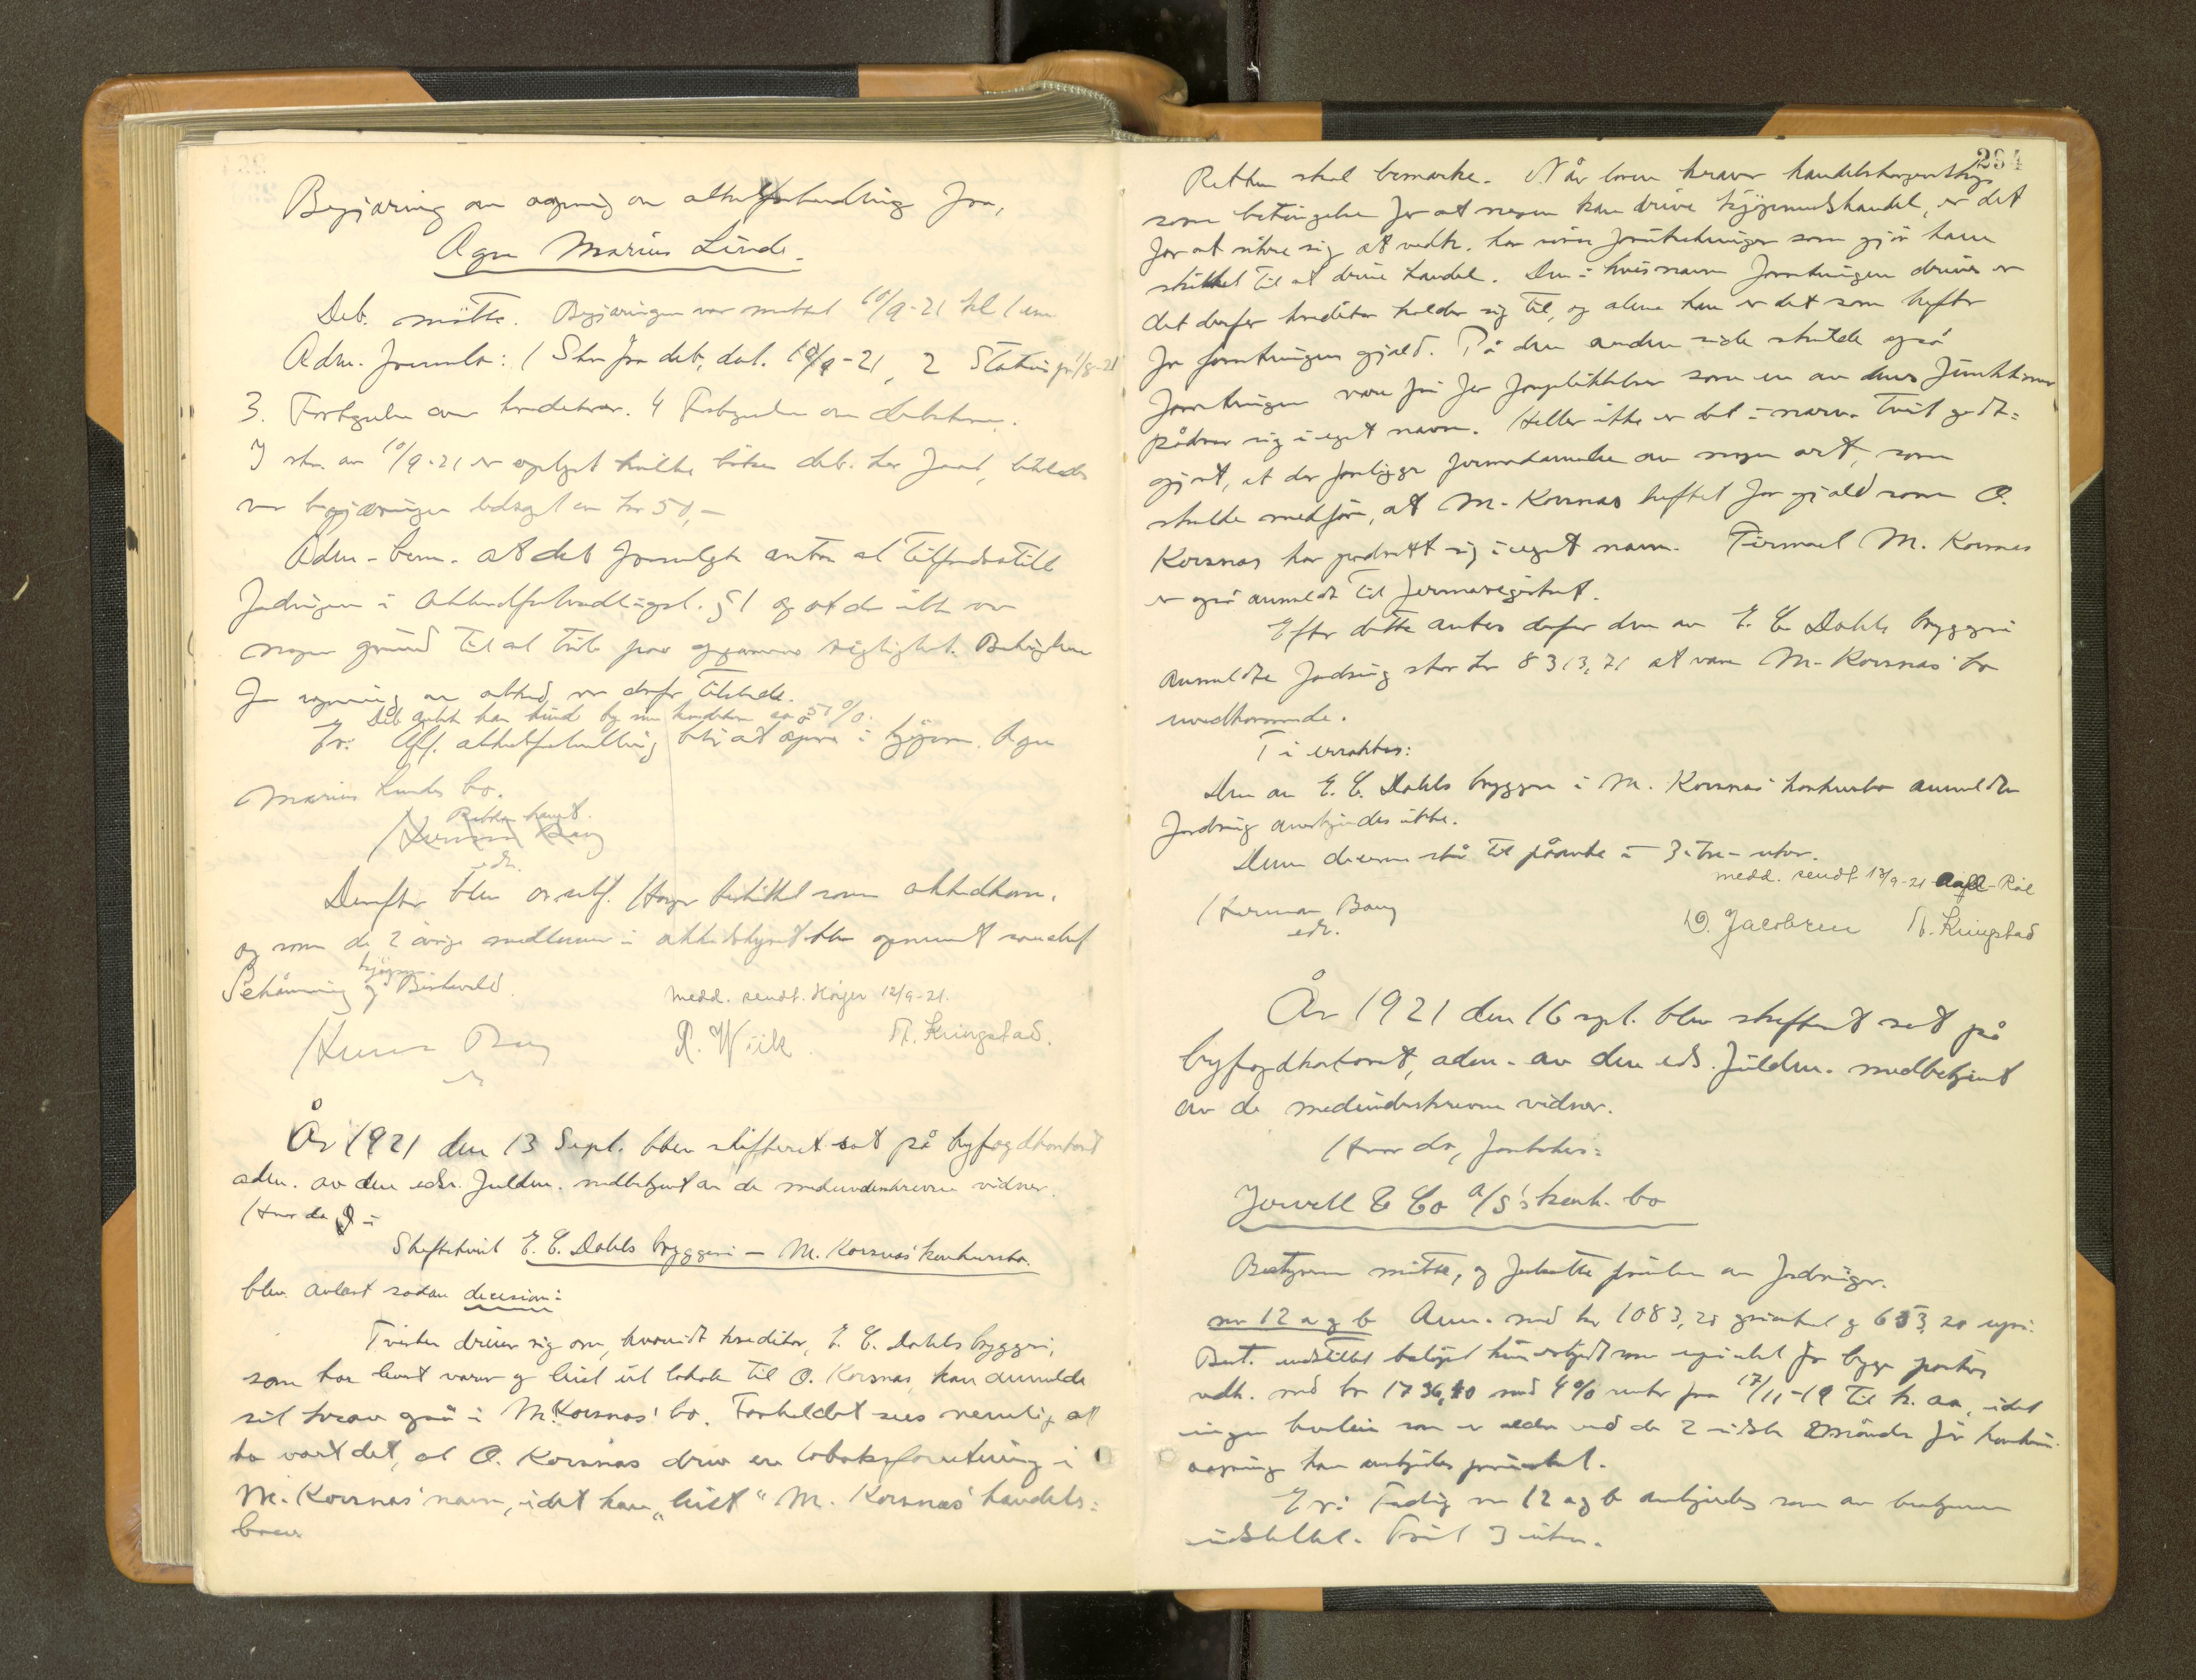 Begjæring om aapning av akkordforhandling fra,
Ågn Marius Linde.
Deb. møtte. Begjæringen var mottat 10/9-21 kl 1 em
Adm. fremla: 1 Skr fra deb. dat. 10/9-21, 2 Status pr 1/8-21
3. Fortegnelse over kreditorer. 4 Fortegnelse over debitorer.
I skr. av 10/9-21 er oplyst hvilke bøker deb. har ført,
var begjæringen ledsaget av kr 50,-
Adm. bem. at det fremlagte antas at tilfredsstille
fordringene i akkordforhandlingsl. § 1 og at der ikke var
nogen grund til at tvile paa opgavenes rigtighet. Betingelsene
for aapning av akkord var derfor tilstede.
Deb. antok han kunde by sine kreditorer ca 50%.
Er: Off. akkordforhandling blir at åpne i kjøpm. Ågn
Marius Lindes bo.
Retten hævet.
Herman Bang
edr.
Derefter blev or.sakf. Høyer beskikket som akkordkom.
og som de 2 øvrige medlemmer i akkordstyret blev opnævnt
kjøpm.
og Birkevold.
medd. sendt. Höyer 12/9-21.
Herman Bang
edr
R. Wiik
N. Kringstad.
År 1921 den 13 Sept. blev skifteret sat på byfogdkontoret
adm. av den edsv. fuldm. medbetjent av de medunderskrevne vidner.
Hvor da I :
Skiftetvist E. C. Dahls bryggeri – M. Korsnæs' konkursbo.
blev avlagt sådan decision:
Tvisten dreier sig om, hvorvidt kreditor, E. C. Dahls bryggeri,
som har levert varer og leiet ut lokale til O. Korsnæs, kan anmelde
sit krav også i M. Korsnæs' bo. Forholdet sees nemlig at
ha vært det, at O. Korsnæs drev en tobaksforretning i
M. Korsnæs' navn, idet han "leiet" M. Korsnæs' handels=
brev
264
Retten skal bemærke. Når loven kræver handelsborgerskap
som betingelse for at nogen kan drive kjøpmandshandel, er det
for at sikre sig at vedk. har visse forutsetninger som gjør ham
skikket til at drive handel. Den i hvis navn forretningen drives er
det derfor kreditor holder sig til, og alene han er det som hefter
for forretningens gjæld. På den anden side skulde også
forretningen være fri for forpliktelser som en av dens funktionærer
pådrar sig i eget navn. Heller ikke er det i nærv. tvist godt=
gjort, at der foreligger firmadannelse av nogen art, som
skulde medføre, at M. Korsnæs heftet for gjæld som O.
Korsnæs har pådratt sig i eget navn. Firmaet M. Korsnæs
er også anmeldt til firmaregistret.
Efter dette antas derfor den av E. C. Dahls bryggeri
anmeldte fordring stor kr 8313,71 at være M. Korsnæs' bo
uvedkommende.
Ti eragtes:
Den av E. C. Dahls bryggeri i M. Korsnæs' konkursbo anmeldte
fordring anerkjendes ikke.
Denne decision står til påanke i 3-tre-uker.
medd. sendt 13/9-21
Herman Bang
edr.
O. Jacobsen N. Kringstad
År 1921 den 16 sept. blev skifteret sat på
byfogdkontoret, adm. av den eds. fuldm. medbetjent
av de medunderskrevne vidner.
Hvor da, foretokes:
Jowell & Co A/S's konk. bo
Bestyreren møtte, og fortsatte prøvelsen av fordringer.
nr 12 a og b Anm. med kr 1083,20 priviert og 653,20 upri.
Best. indstillet beløpet kun som upriviert for begge poster
vedk. med kr 1736,40 med 4% renter fra 17/11-19 til k. aa, idet
ingen husleie som er ældre end de 2 sidste måneder før konkurs
aapning kan anerkjendes priviert.
Er: Fordring nr 12 a og b anerkjendes som av bestyreren
indstillet. Frist 3 uker.